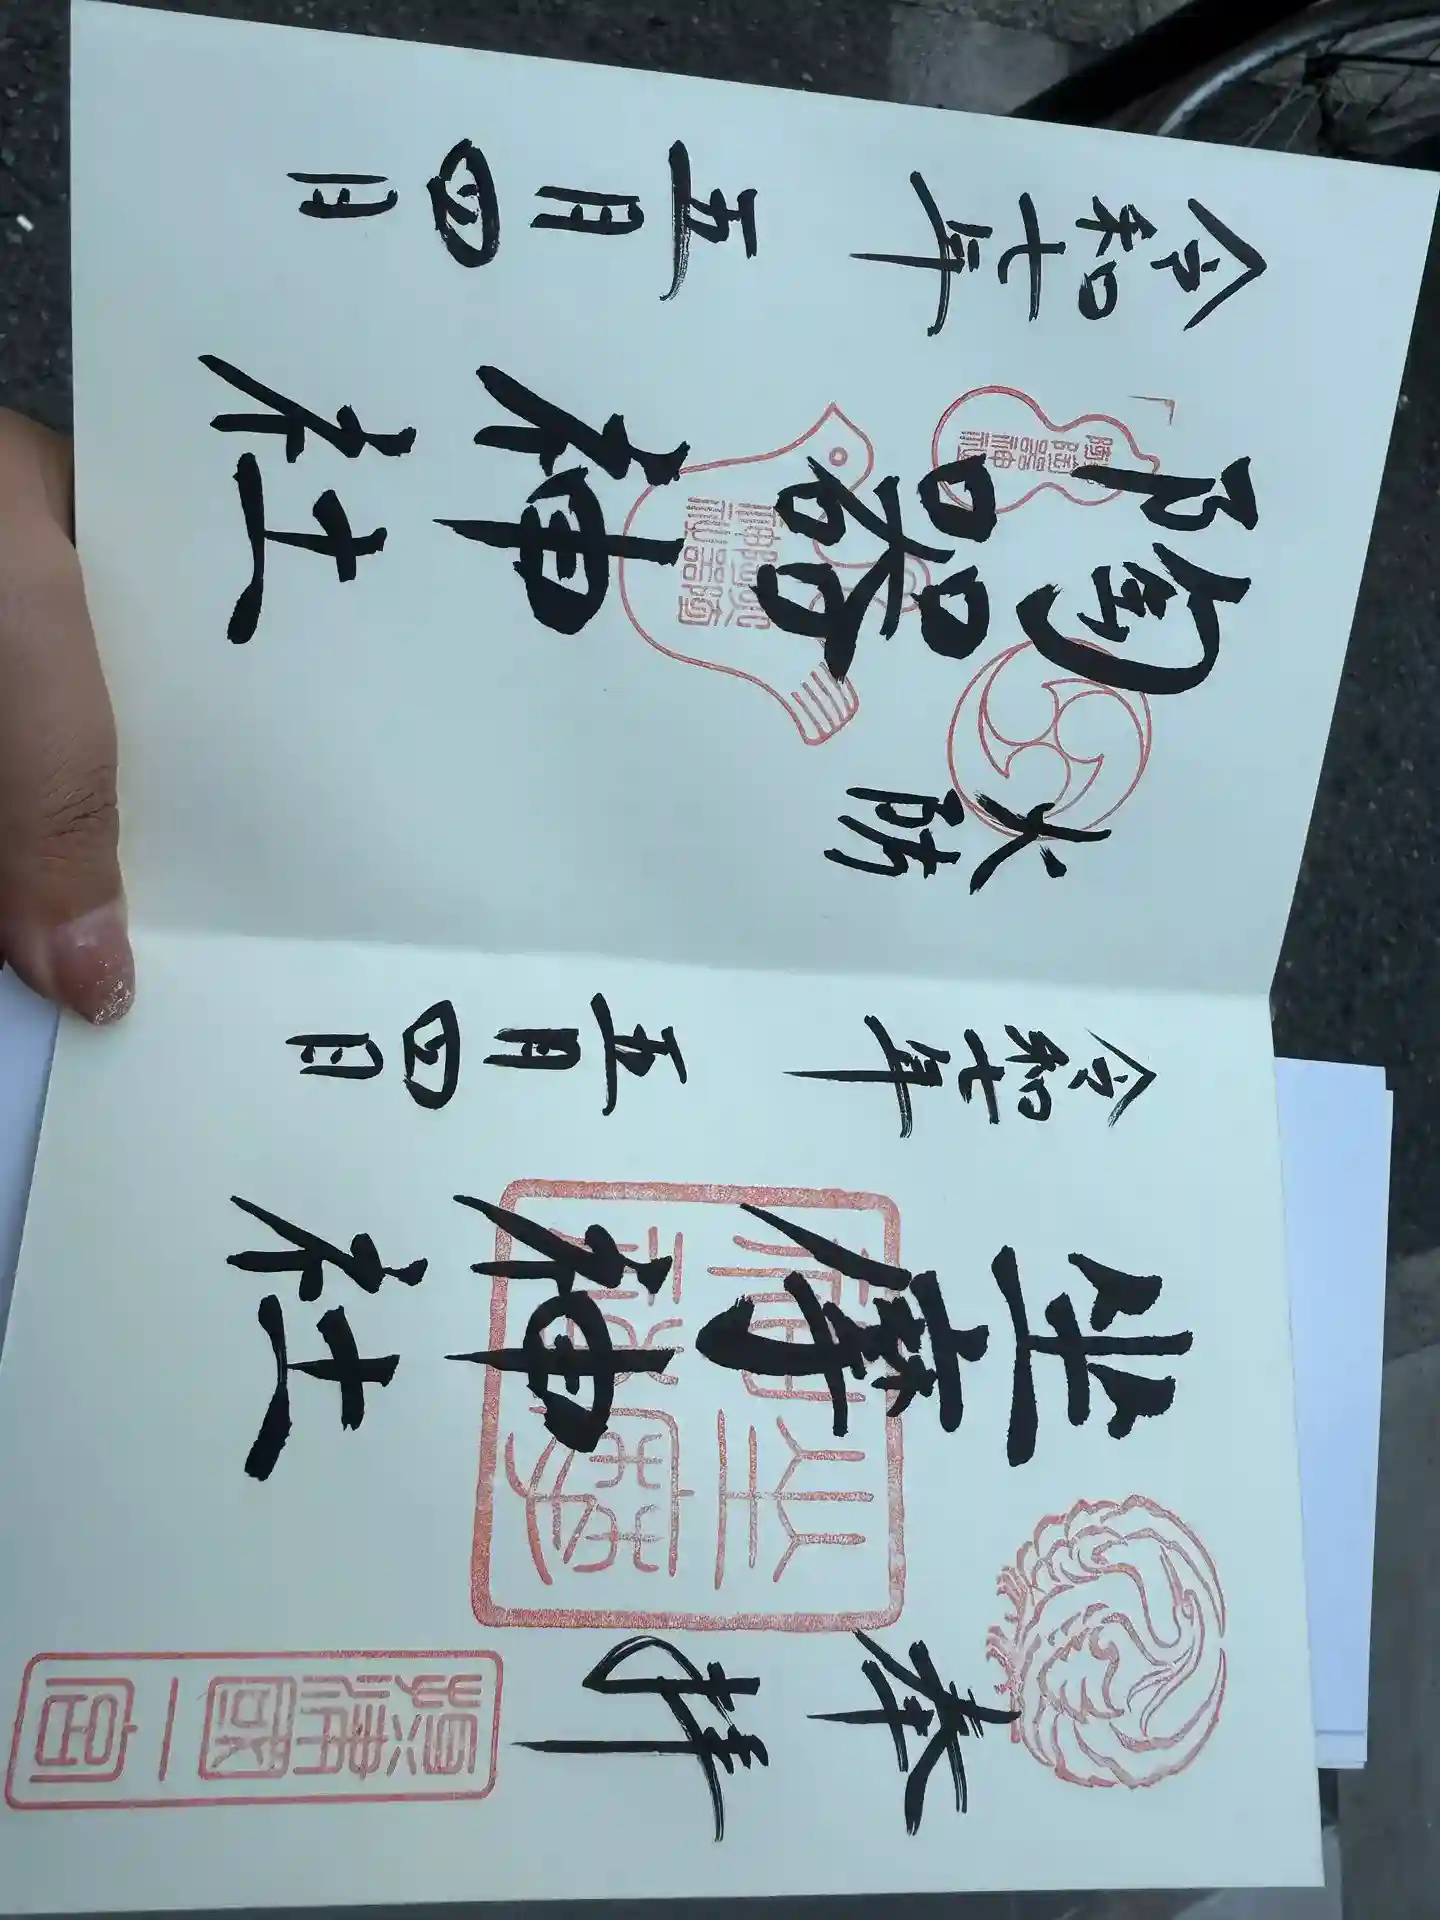 奉拝
攝津國一宮
坐摩神社
坐摩
神社
令和七年五月四日
火防
陶器神社
令和七年五月四日